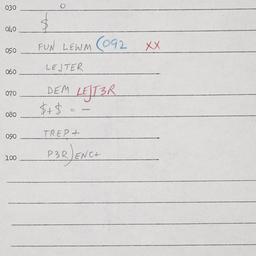 030 o
040 $
050 FUN LEWM (092 XX
060 LEJTER
070 DEM LEJT3R
080 $+$ = -
090 TREP+
100 P3R)ENC+